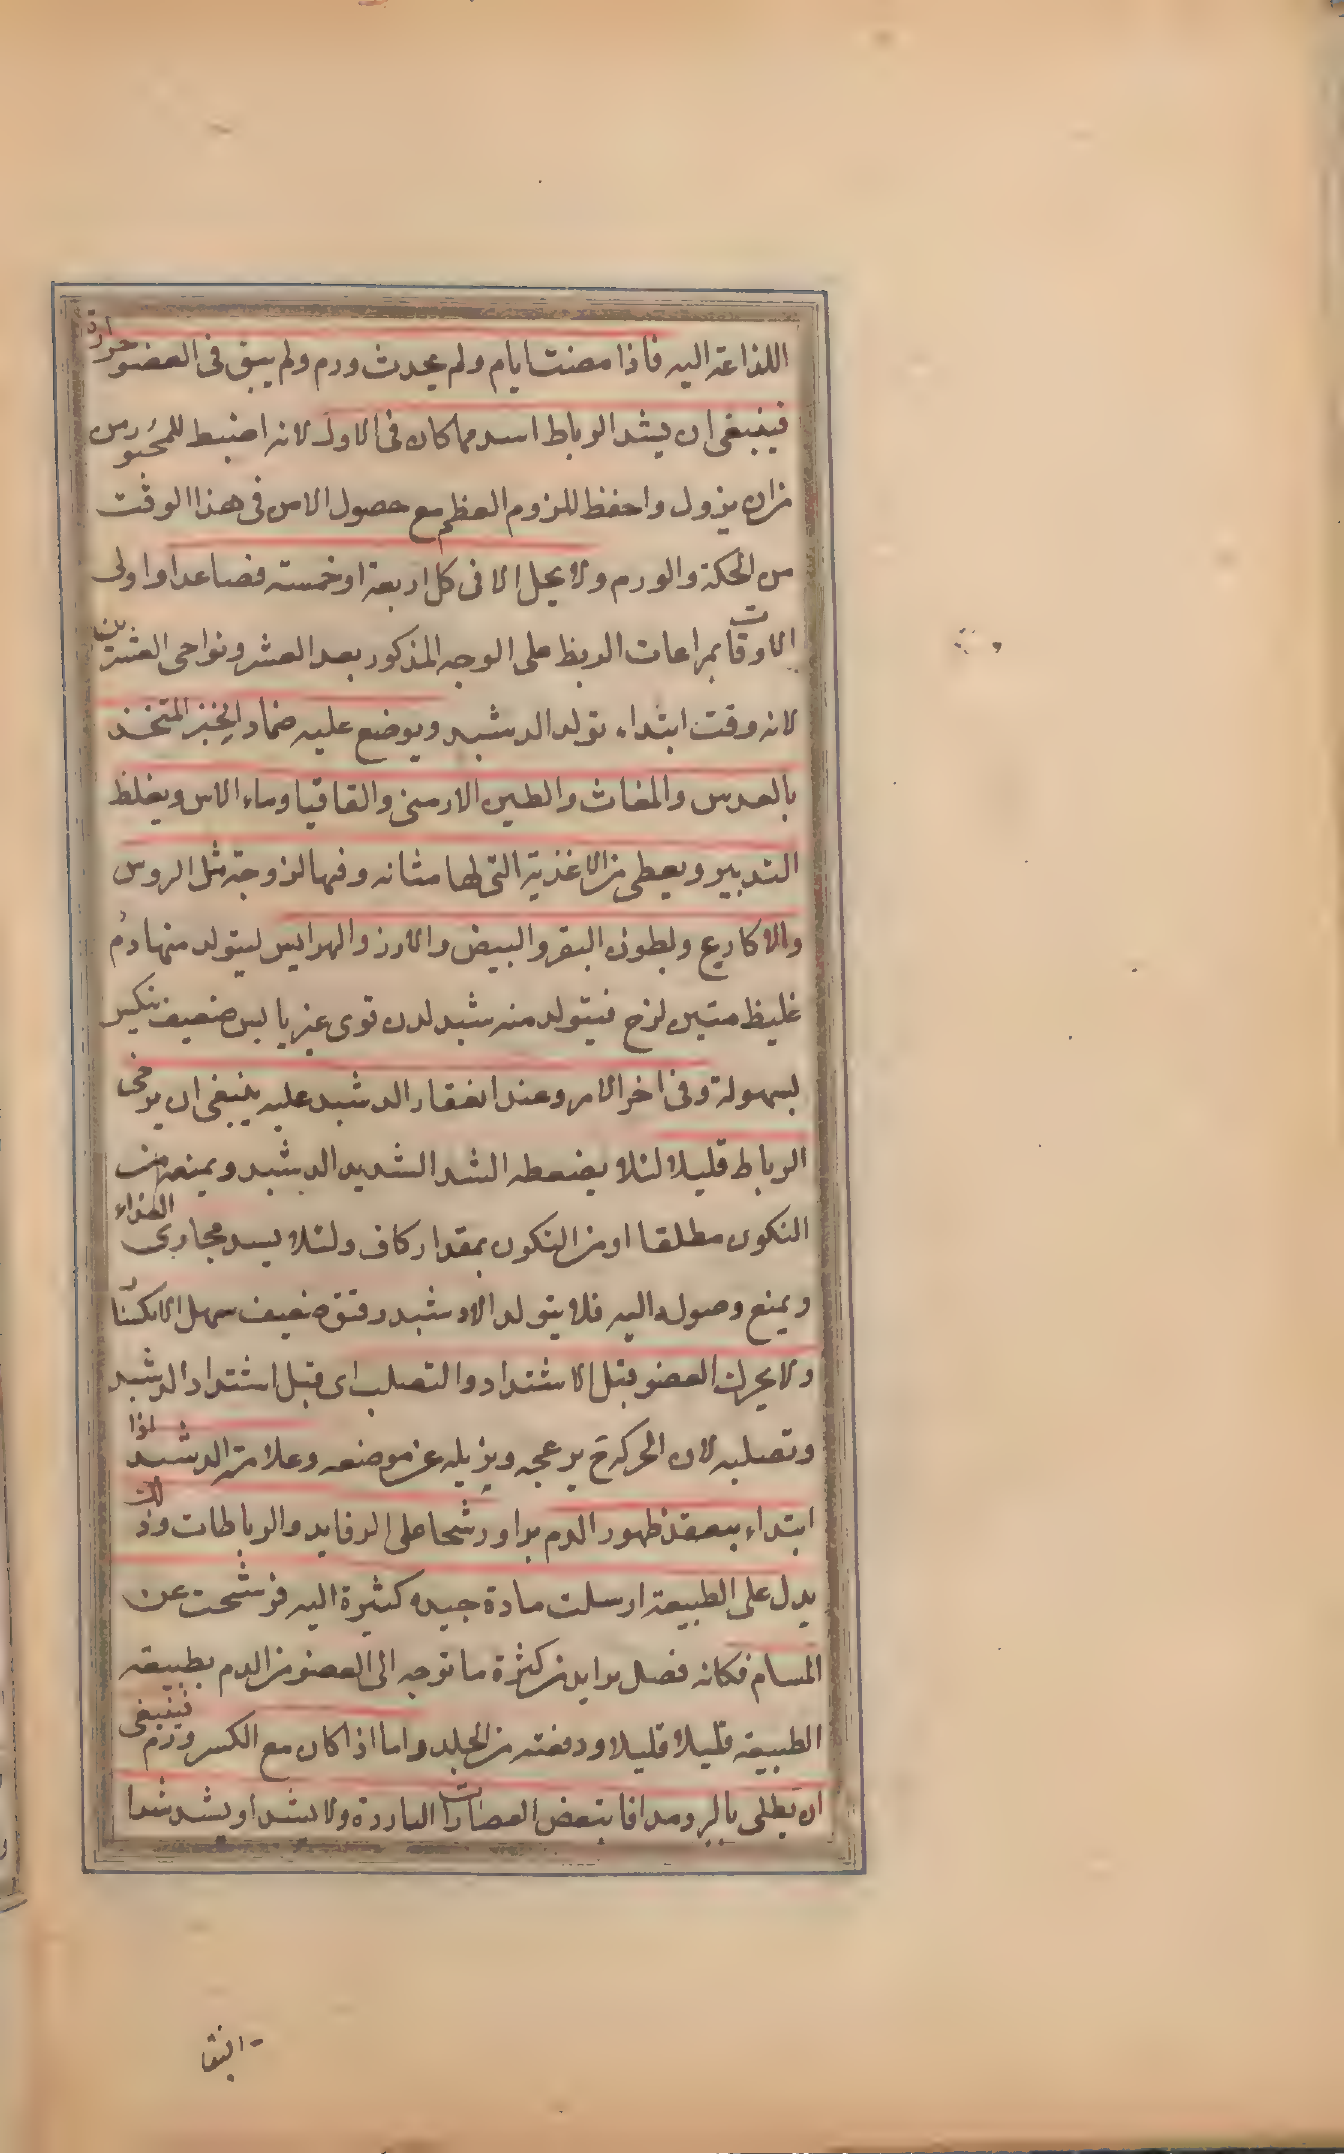 اللذاعة اليه فاذا مضت ايام ولم يحدث ورم ولم يبق فى العضو حرارة
فينبغى ان يشد الرباط اسد مما كان فى الاول لانه اضبط للمجبور من
من ان يزول واحفظ للزوم العظم مع حصول الامن فى هذا الوقت
من الحكة والورم ولا يحل الا فى كل اربعة او خمسة فصاعدا واولى
الاوقات بمراعات الربط على الوجه المذكور بعد العشر ونواحى العشرين
لانه وقت ابتداء تولد الدشبد ويوضع عليه ضماد الخبز المتخذ
بالعدس والمغاث والطين الارمنى والقاقيا وماء الاس ويغلظ
التدبير ويعطى من الاغذية التى لها متانه وفيها لزوجة مثل الروس
والاكاريع وبطون البقر والبيض والارز والهرايس ليتولد منها دم
غليظ متين لزج فيتولد منه شبد لدن قوى غير يابس ضعيف ينكسر
بسهولة وفى اخر الامر وعند انعقاد الدشبد عليه ينبغى ان يرخى
الرباط قليلا لئلا يضغطه الشد الشديد الدشبد ويمنعه من
التكون مطلقا او من التكون بمقدار كاف ولئلا يسد مجارى الغذاء
ويمنع وصوله اليه فلا يتولد الا دشبد رقيق ضعيف سهل الانكسار
ولا يحرك العضو قبل الاشتداد والتصلب اى قبل اشتداد الدشبد
وتصلبه لان الحركة يزعجه ويزيله عن موضعه وعلامة الدشبد اذا
ابتداء ينعقد ظهور الدم برا ورشحا على الرفايد والرباطات وذلك
يدل على الطبيعة ارسلت مادة جيده كثيرة اليه فرشحت عن
المسام فكانه فصل من كثرة ما توجه الى العضو من الدم بطبيعة
الطبيعة قليلا قليلا ودفعته من الجلد واما اذا كان مع الكسر ورم فينبغى
ان يطلى مدافا ببعض العصارات الباردة ولا يشد او يشد شدا